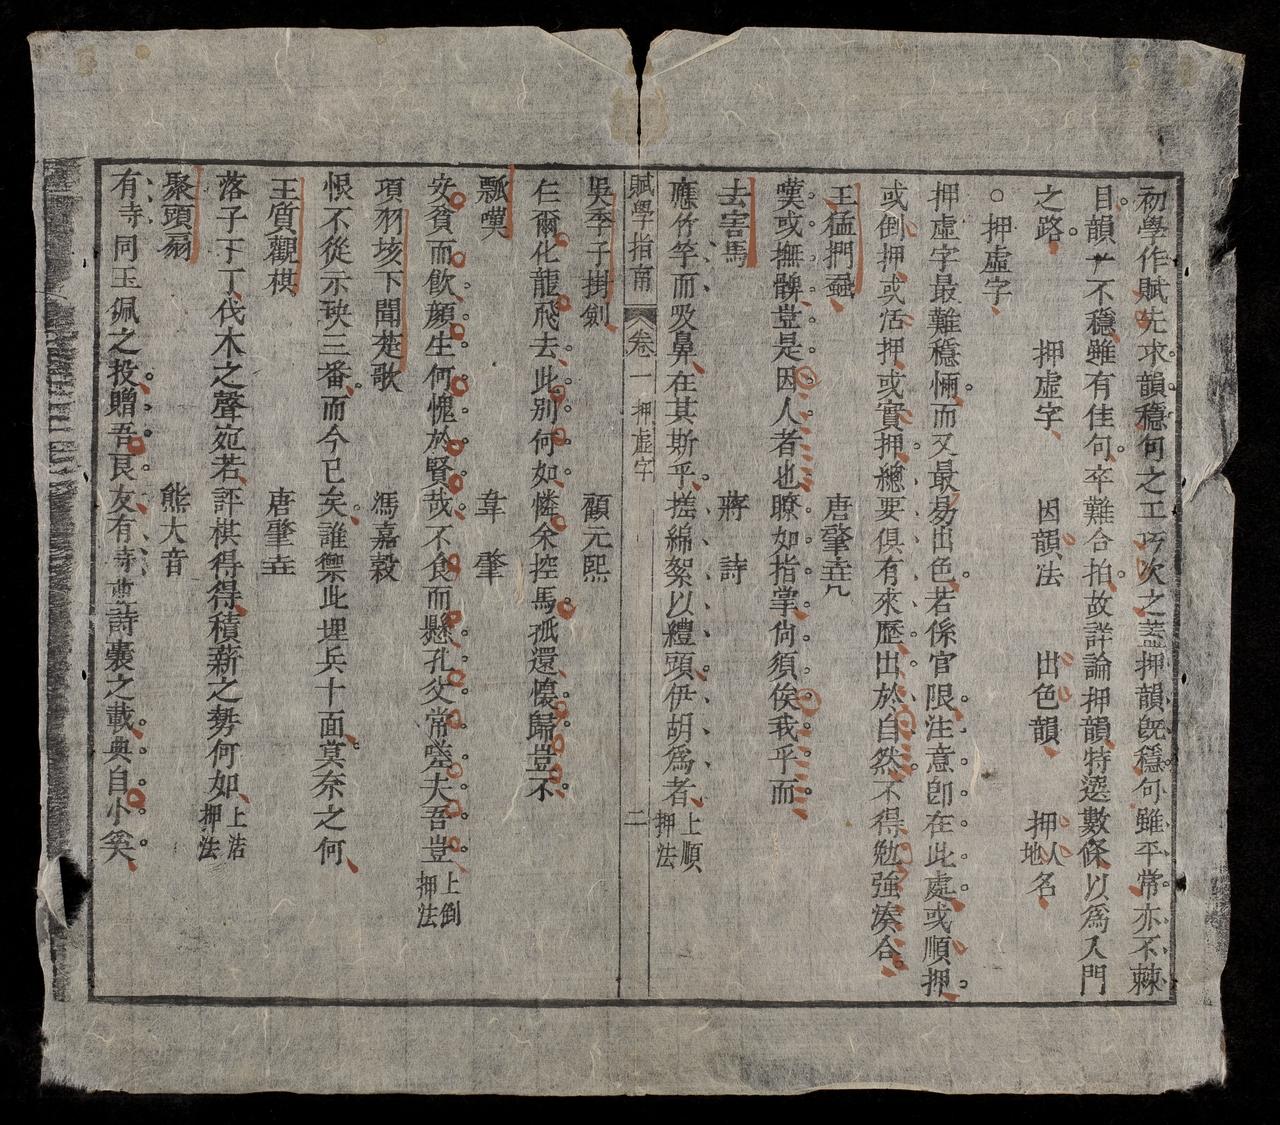 初學作賦先求韻穩句之工巧次之蓋押韻既穩句雖平常亦不棘
目韻一不穩雖有佳句卒難合拍故詳論押韻特選數條以爲入門
之路 押虛字 因韻法 出色韻 押人地名
○押虛字
押虛字最難穩愜而又最易出色若係官限注意卽在此處或順押
或倒押或活押或實押總要俱有來歷出於自然不得勉強湊合
王猛捫蝨 唐肇
嘆或撫髀豈是因人者也瞭如指掌尙須俟我乎而
去害馬 蔣詩
應竹竿而吸鼻在其斯乎搓綿絮以纏頭伊胡爲者上順押法
賦學指南 卷一 押虛字 二
吳季子掛劍 顧元熙
仁爾化龍飛去此別何如憐余控馬孤還懷歸豈不
瓢嘆 韋肇
安貧而飮顏生何愧於賢哉不食而懸孔父常嗟夫吾豈上倒押法
項羽垓下聞楚歌 馮嘉穀
恨不從示玦三番而今已矣誰禦此埋兵十面莫奈之何
王質觀棋 唐肇
落子下丁伐木之聲宛若評棋得得積薪之勢何如上活押法
聚頭扇 熊大音
有時同玉佩之投贈吾良友有時詩囊之載與自小奚